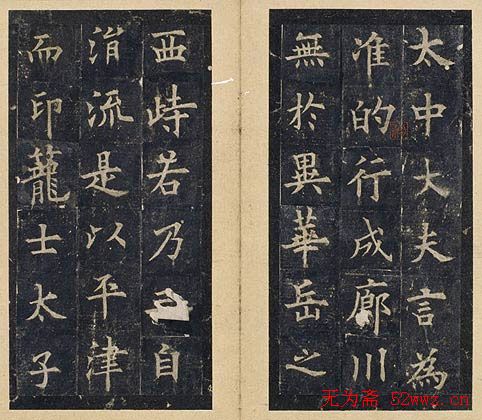 太中大夫言為
准的行成廊川
無於異華岳之
西峙若乃自
涓流是以平津
而印蘢士太子
无为斋 52wwz.cn